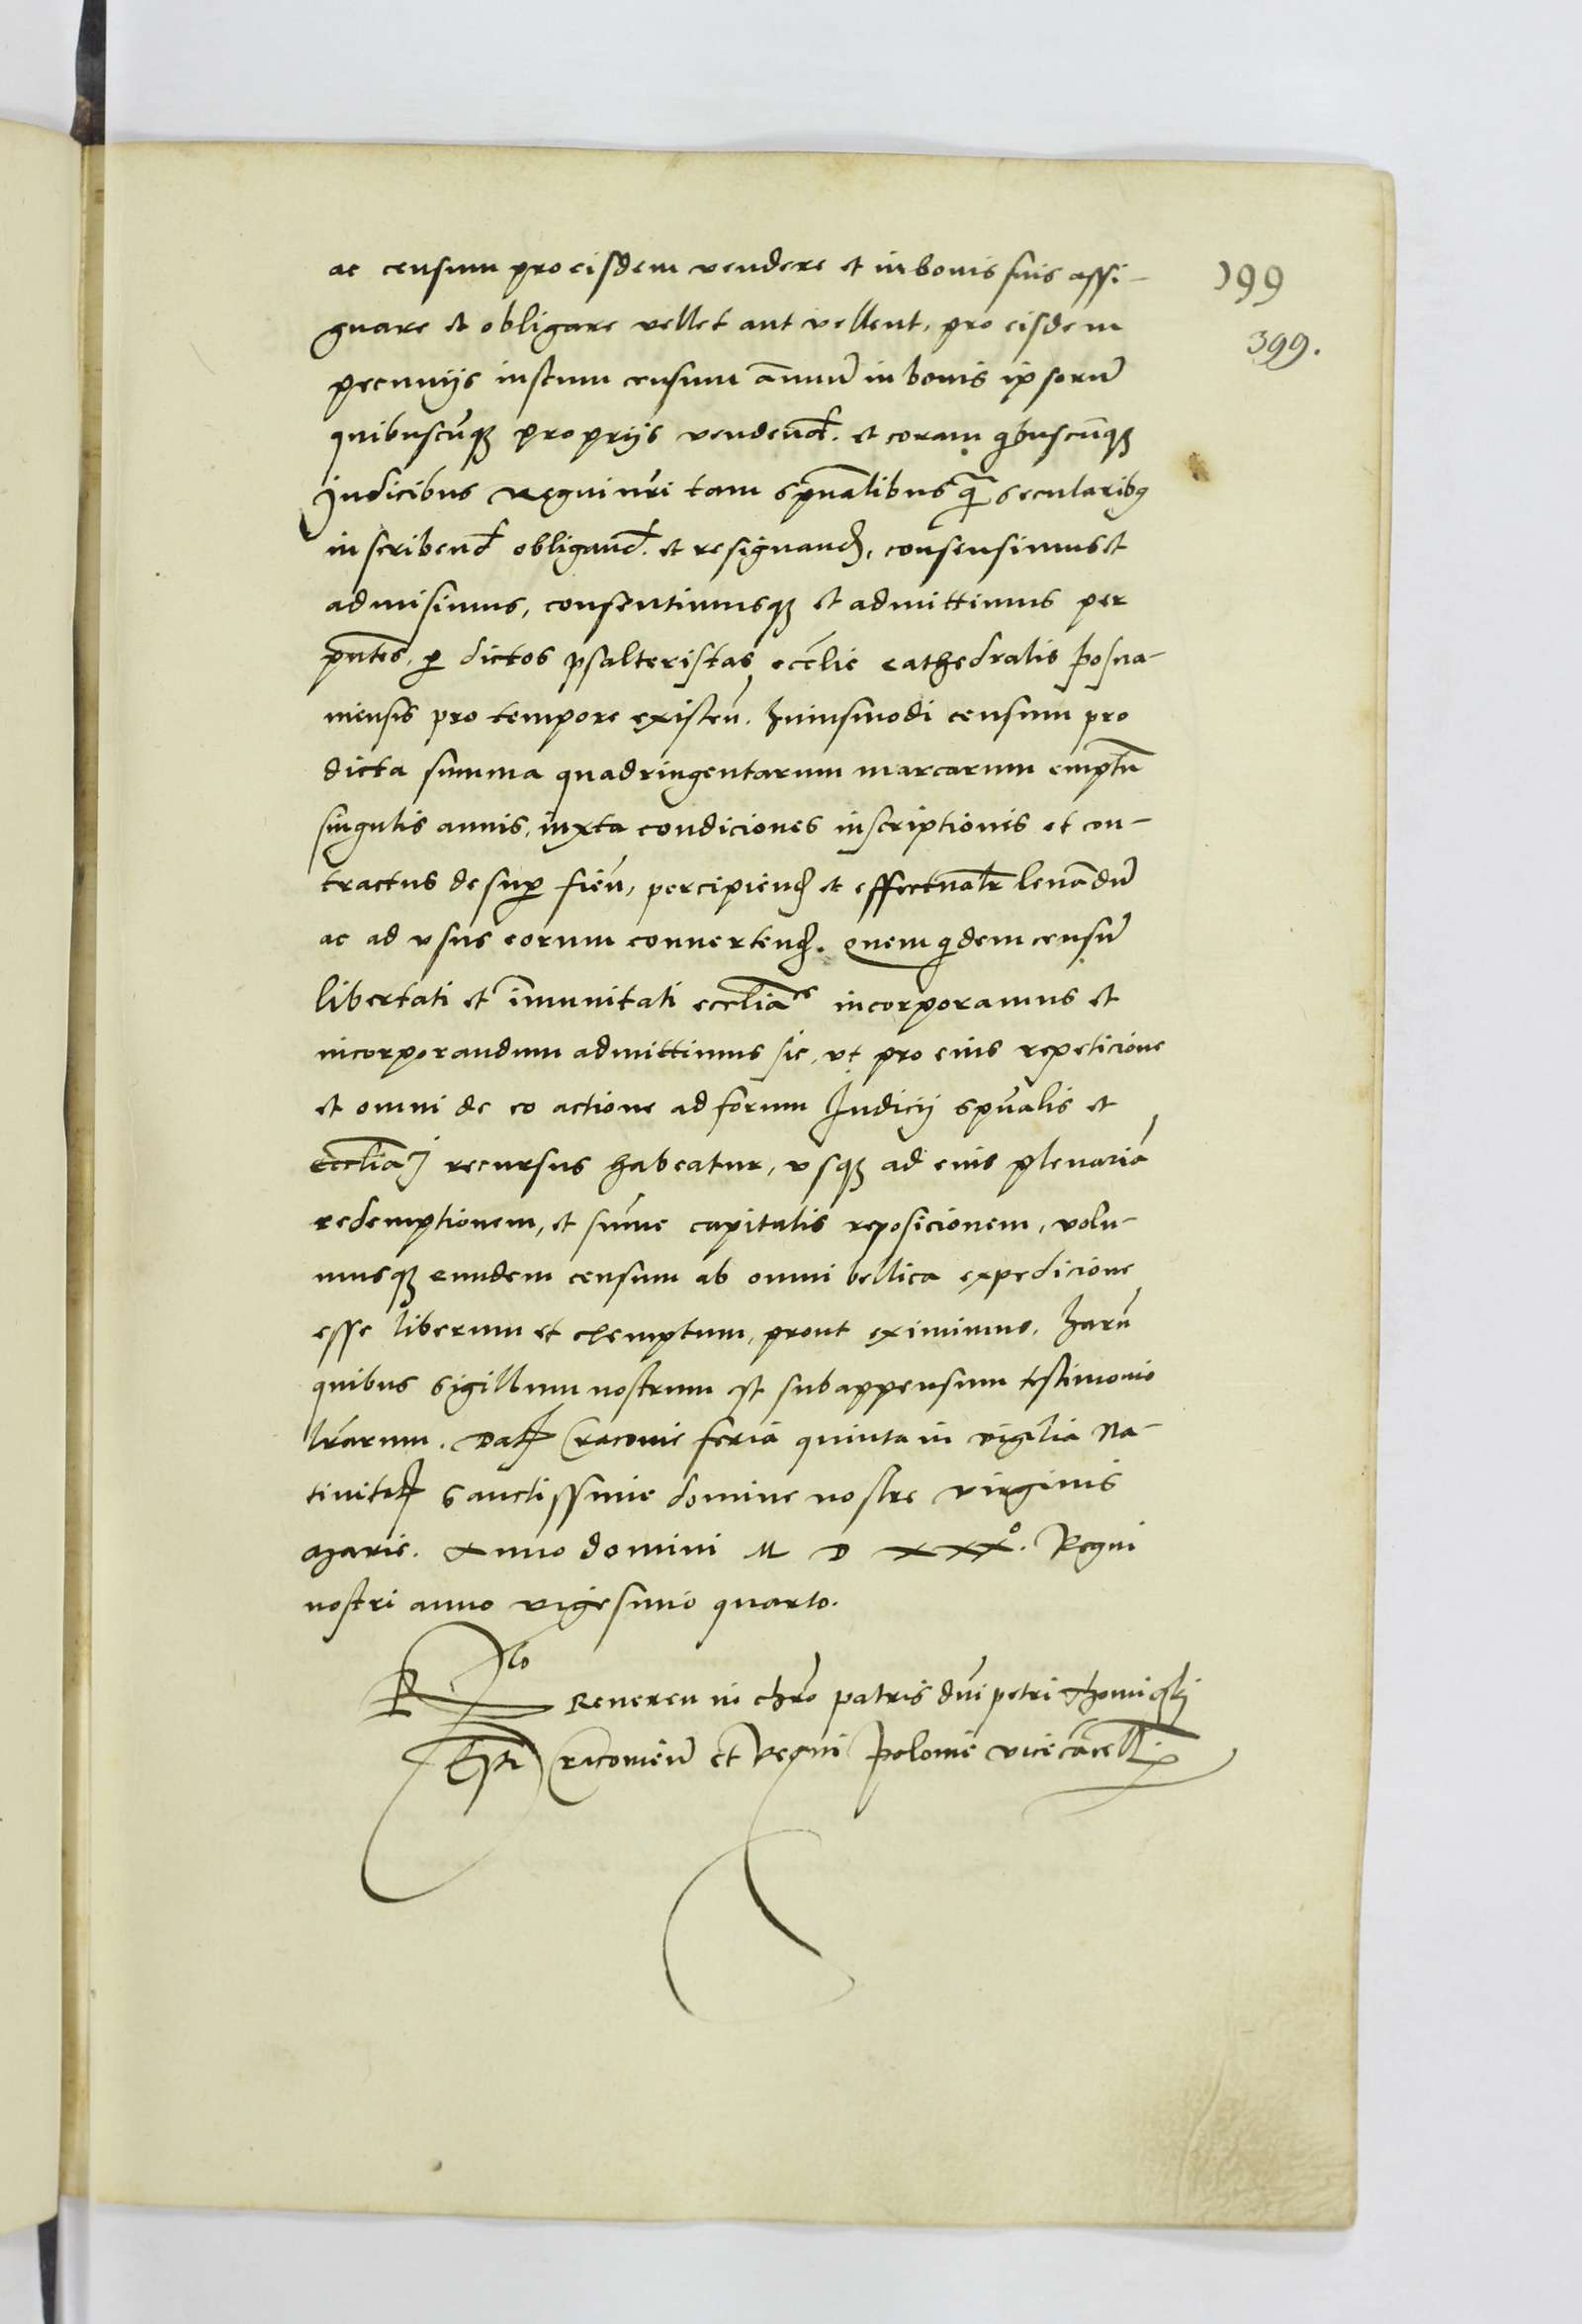 ac censum pro eisdem vendere et in bonis suis assi-
199
gnare et obligare vellet aut vellent, pro eisdem
399.
pecunijs iustum censum annuū in bonis ipsorū
quibuscūqꝫ proprijs vendend. et coram qibuscūqꝫ
Judicibus Regni nr̄i tam spūalibus q̄ secularibꝰ
inscribend obligand. et resignand, consensimus et
admisimus, consentimusqꝫ et admittimus per
pn̄tes, ꝑ dictos psalteristas eccl̄ie cathedralis Posna-
niensis pro tempore existen̄. huiusmodi censum pro
dicta summa quadringentarum marcarum emptū
singulis annis, iuxta condiciones inscriptionis et con-
tractus desuꝑ fien̄, percipiend et effectualr̄ leuandū
ac ad vsus eorum conuertend. Quem qidem censū
libertati et īmunitati eccl̄iace incorporamus et
incorporandum admittimus sic, vt pro eius repeticione
et omni de eo actione ad forum Judicij spūalis et
eccl̄iaci recursus habeatur, vsqꝫ ad eius plenariā
redemptionem, et sūme capitalis reposicionem, volu-
musqꝫ eundem censum ab omni bellica expedicione
esse liberum et exemptum, prout eximimus. Harū
quibus sigillum nostrum est subappensum testimonio
lr̄arum. Dat Cracouie feria quinta in vigilia Na-
tiuitat Sanctissime domine nostre virginis
Marie. Anno domini M D XXXº. Regni
nostri anno vigesimo quarto.
Rlo Reueren in chr̄o patris dn̄i petri Thomiczki
Ep̄i Cracouien̄ et Regni Polonie vicecācell